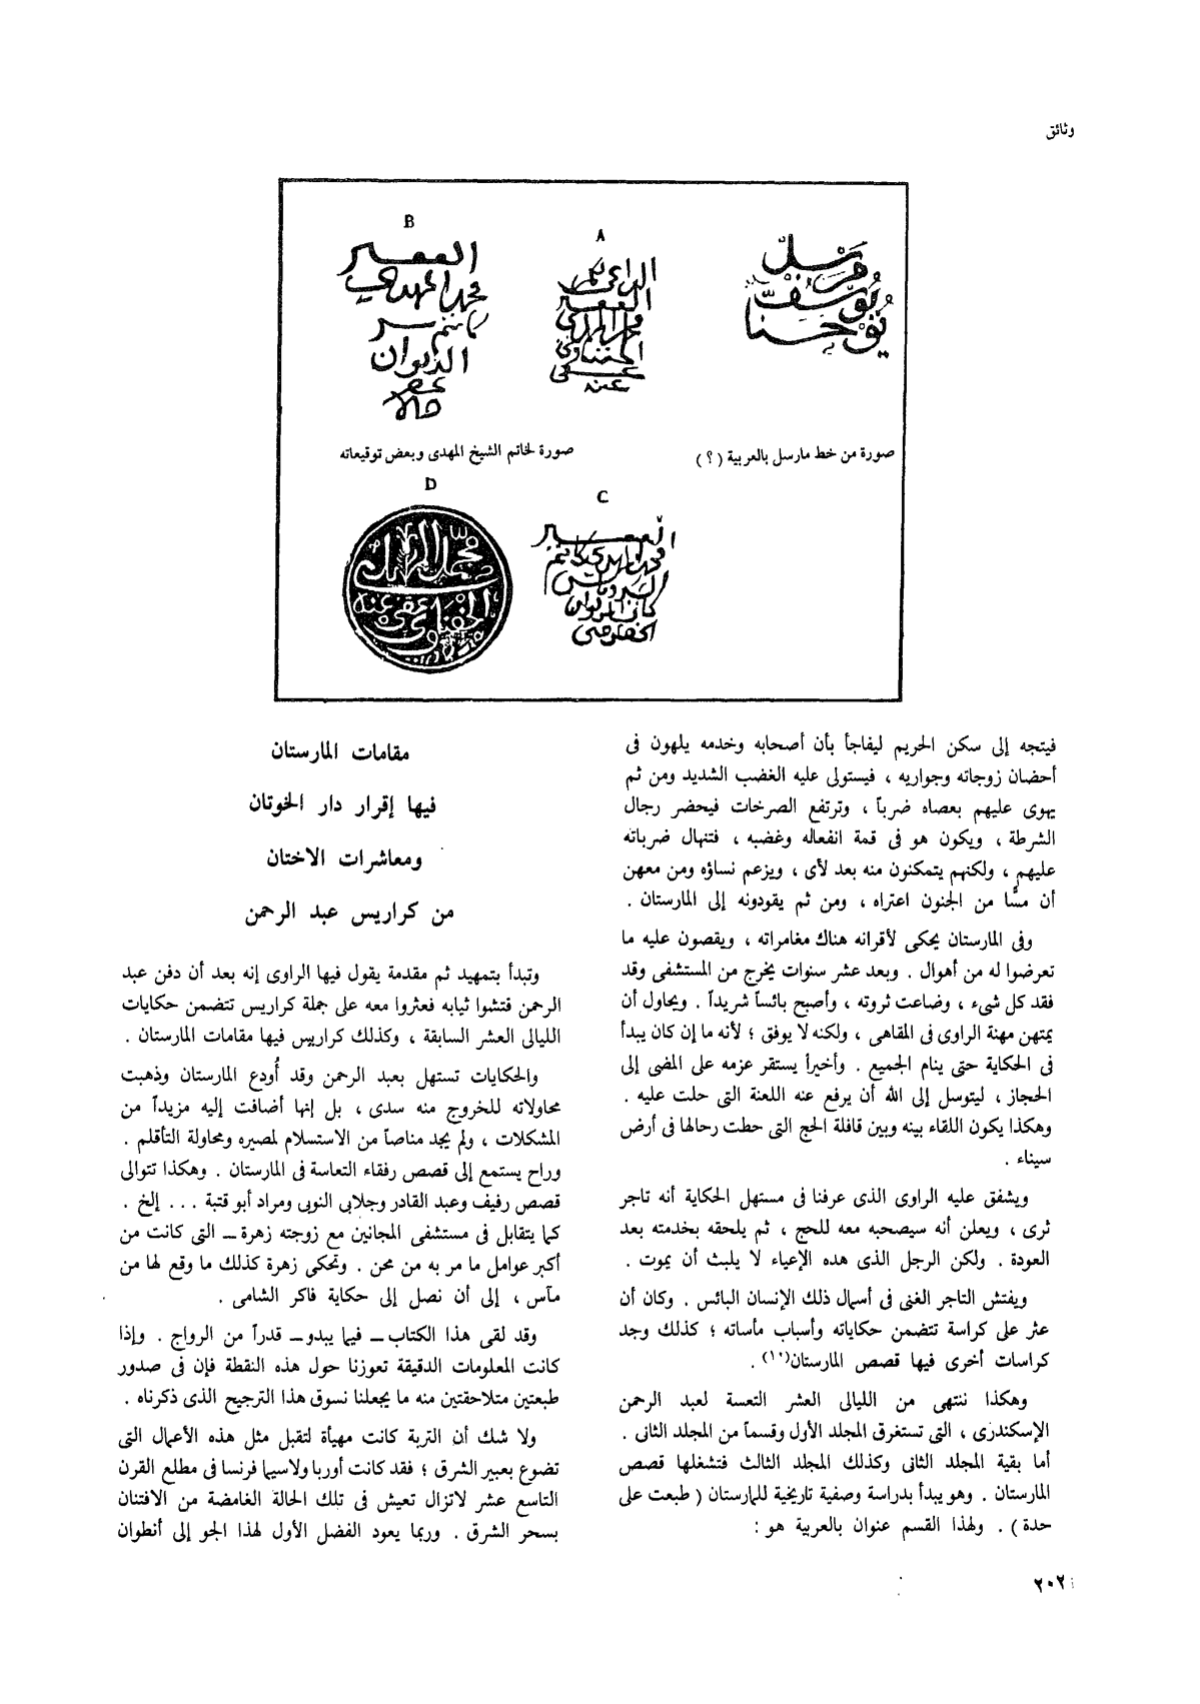 وثائق
B
A
الفقير
محمد المهدى
كاتم سر
الديوان
الداعى لكم
الفقير
محمد المهدى
الحفناوى
عفى
عنه
مرسل
يوسف
يوحنا
صورة من خط مارسل بالعربية (؟)
صورة لخاتم الشيخ المهدى وبعض توقيعاته
D
C
الفقير
محمد المهدى كاتم
فيتجه إلى سكن الحريم ليفاجأ بأن أصحابه وخدمه يلهون فى
أحضان زوجاته وجواريه ، فيستولى عليه الغضب الشديد ومن ثم
يهوى عليهم بعصاه ضرباً ، وترتفع الصرخات فيحضر رجال
الشرطة ، ويكون هو فى قمة انفعاله وغضبه ، فتنهال ضرباته
عليهم ، ولكنهم يتمكنون منه بعد لأى ، ويزعم نساؤه ومن معهن
أن مسًّا من الجنون اعتراه ، ومن ثم يقودونه إلى المارستان .
وفى المارستان يحكى لأقرانه هناك مغامراته ، ويقصون عليه ما
تعرضوا له من أهوال . وبعد عشر سنوات يخرج من المستشفى وقد
فقد كل شىء ، وضاعت ثروته ، وأصبح بائساً شريداً . ويحاول أن
يمتهن مهنة الراوى فى المقاهى ، ولكنه لا يوفق ؛ لأنه ما إن كان يبدأ
فى الحكاية حتى ينام الجميع . وأخيراً يستقر عزمه على المضى إلى
الحجاز ، ليتوسل إلى الله أن يرفع عنه اللعنة التى حلت عليه .
وهكذا يكون اللقاء بينه وبين قافلة الحج التى حطت رحالها فى أرض
سيناء .
ويشفق عليه الراوى الذى عرفنا فى مستهل الحكاية أنه تاجر
ثرى ، ويعلن أنه سيصحبه معه للحج ، ثم يلحقه بخدمته بعد
العودة . ولكن الرجل الذى هده الإعياء لا يلبث أن يموت .
ويفتش التاجر الغنى فى أسمال ذلك الإنسان البائس . وكان أن
عثر على كراسة تتضمن حكاياته وأسباب مأساته ؛ كذلك وجد
كراسات أخرى فيها قصص المارستان(١٠) .
وهكذا ننتهى من الليالى العشر التعسة لعبد الرحمن
الإسكندرى ، التى تستغرق المجلد الأول وقسماً من المجلد الثانى .
أما بقية المجلد الثانى وكذلك المجلد الثالث فتشغلها قصص
المارستان . وهو يبدأ بدراسة وصفية تاريخية للمارستان ( طبعت على
حدة ) . ولهذا القسم عنوان بالعربية هو :
مقامات المارستان
فيها إقرار دار الخوتان
ومعاشرات الاختان
من كراريس عبد الرحمن
وتبدأ بتمهيد ثم مقدمة يقول فيها الراوى إنه بعد أن دفن عبد
الرحمن فتشوا ثيابه فعثروا معه على جملة كراريس تتضمن حكايات
الليالى العشر السابقة ، وكذلك كراريس فيها مقامات المارستان .
والحكايات تستهل بعبد الرحمن وقد أُودع المارستان وذهبت
محاولاته للخروج منه سدى ، بل إنها أضافت إليه مزيداً من
المشكلات ، ولم يجد مناصاً من الاستسلام لمصيره ومحاولة التأقلم .
وراح يستمع إلى قصص رفقاء التعاسة فى المارستان . وهكذا تتوالى
قصص رفيف وعبد القادر وجلابى النوبى ومراد أبو قتبة ... إلخ .
كما يتقابل فى مستشفى المجانين مع زوجته زهرة ــ التى كانت من
أكبر عوامل ما مر به من محن . وتحكى زهرة كذلك ما وقع لها من
مآس ، إلى أن نصل إلى حكاية فاكر الشامى .
وقد لقى هذا الكتاب ــ فيما يبدو ــ قدراً من الرواج . وإذا
كانت المعلومات الدقيقة تعوزنا حول هذه النقطة فإن فى صدور
طبعتين متلاحقتين منه ما يجعلنا نسوق هذا الترجيح الذى ذكرناه .
ولا شك أن التربة كانت مهيأة لتقبل مثل هذه الأعمال التى
تضوع بعبير الشرق ؛ فقد كانت أوربا ولاسيما فرنسا فى مطلع القرن
التاسع عشر لاتزال تعيش فى تلك الحالة الغامضة من الافتنان
بسحر الشرق . وربما يعود الفضل الأول لهذا الجو إلى أنطوان
٢٠٢